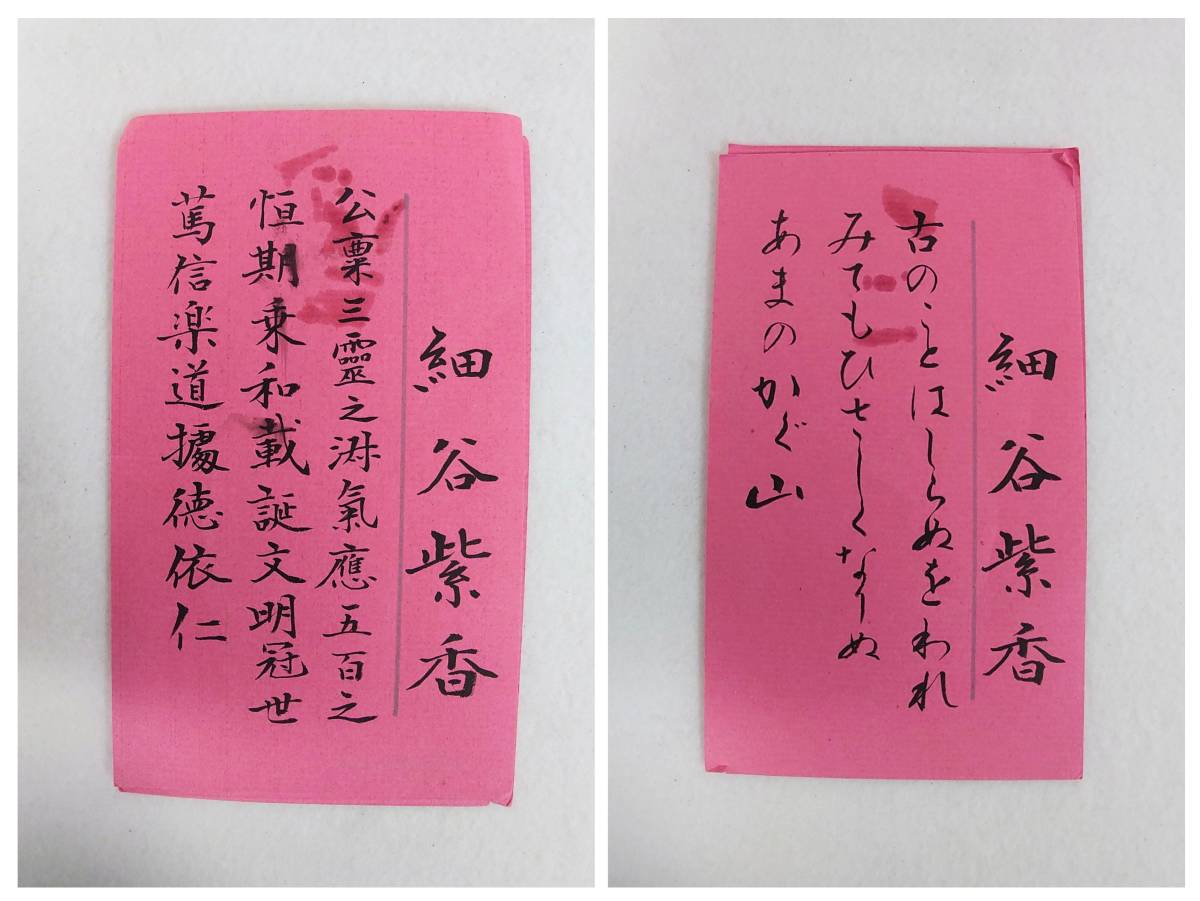 細谷紫香
公稟三靈之淋氣應五百之
恒期乗和載誕文明冠世
篤信楽道據徳依仁
細谷紫香
古のことはしらぬをわれ
みてもひさしくなりぬ
あまのかぐ山